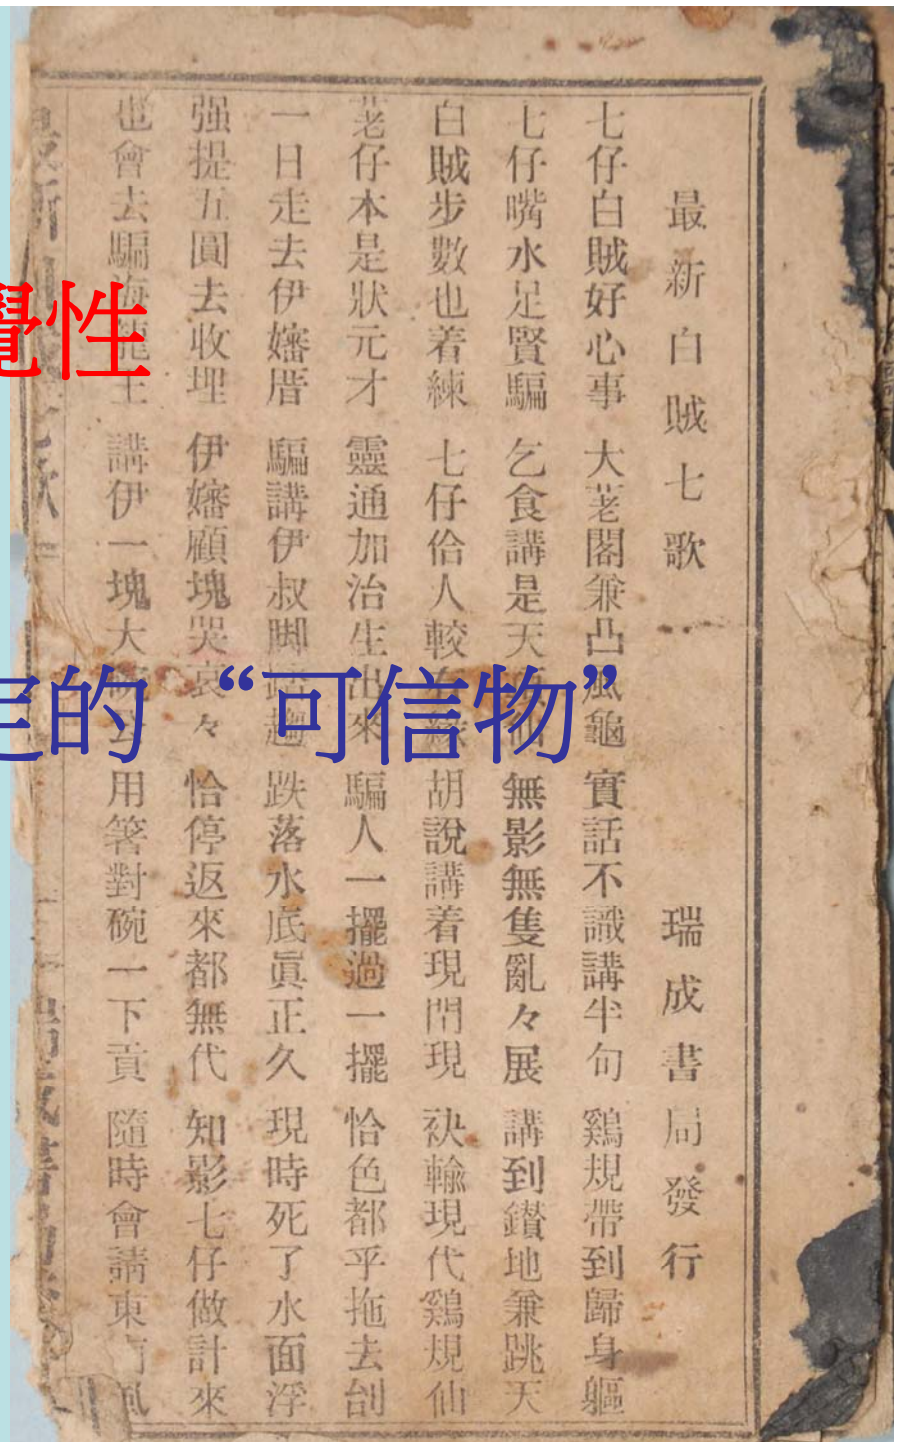 最新白賊七歌 瑞成書局發行
七仔白賊好心事 大荖閣兼凸風龜 實話不識講半句 鷄規帶到歸身軀
七仔嘴水足賢騙 乞食講是天 仙 無影無隻亂々展 講到鑚地兼跳天
白賊步數也着練 七仔佮人較 胡說講着現閂現 袂輸現代鷄規仙
荖仔本是狀元才 靈通加治生出來 騙人一擺過一擺 恰色都乎拖去刣
一日走去伊嬸厝 騙講伊叔脚 趜 跌落水底眞正久 現時死了水面浮
强提五圓去收埋 伊嬸顧塊哭哀々 恰停返來都無代 知影七仔做計來
也會去騙海龍王 講伊一塊大 用箸對碗一下貢 隨時會請東 風
覺性
定的“可信物”